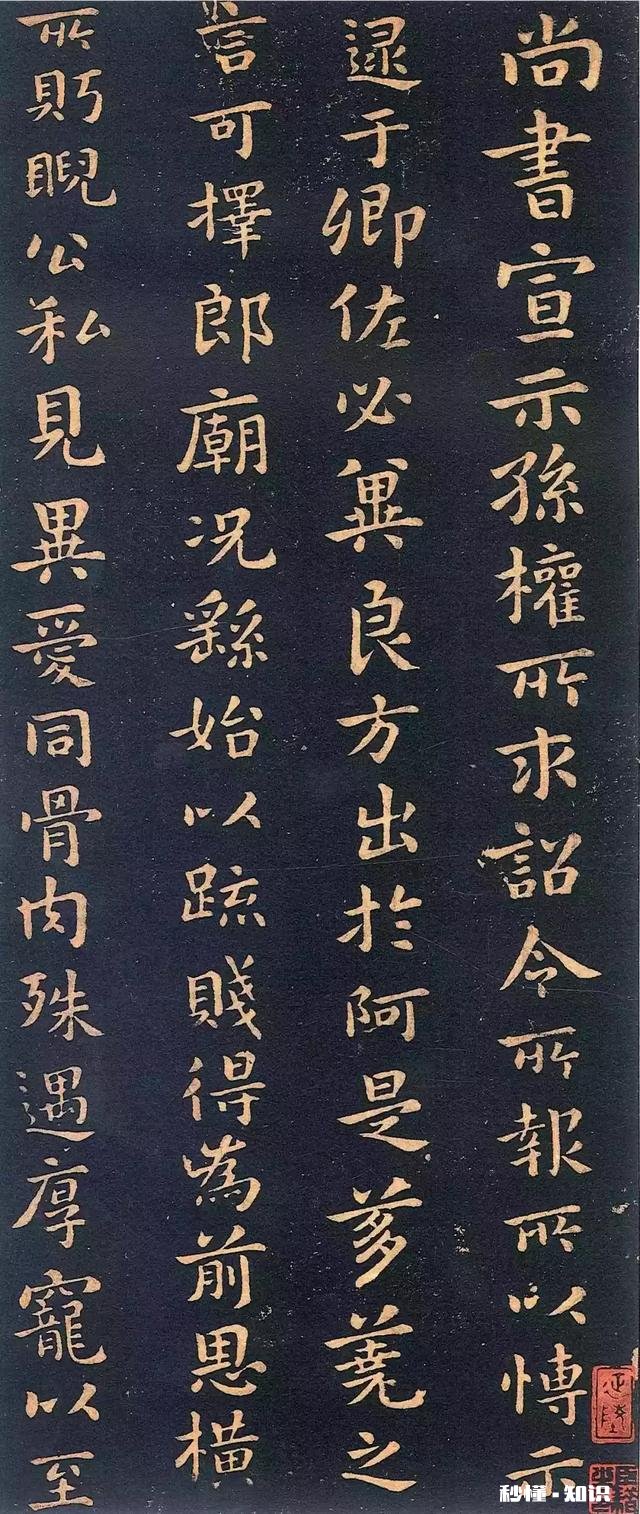 尚書宣示孫權所求詔令所報所以愽示
逮于卿佐必冀良方出於阿是芻蕘之
言可擇郎廟況繇始以疏賤得為前恩橫
所眄睨公私見異愛同骨肉殊遇厚寵以至
秒懂·知识